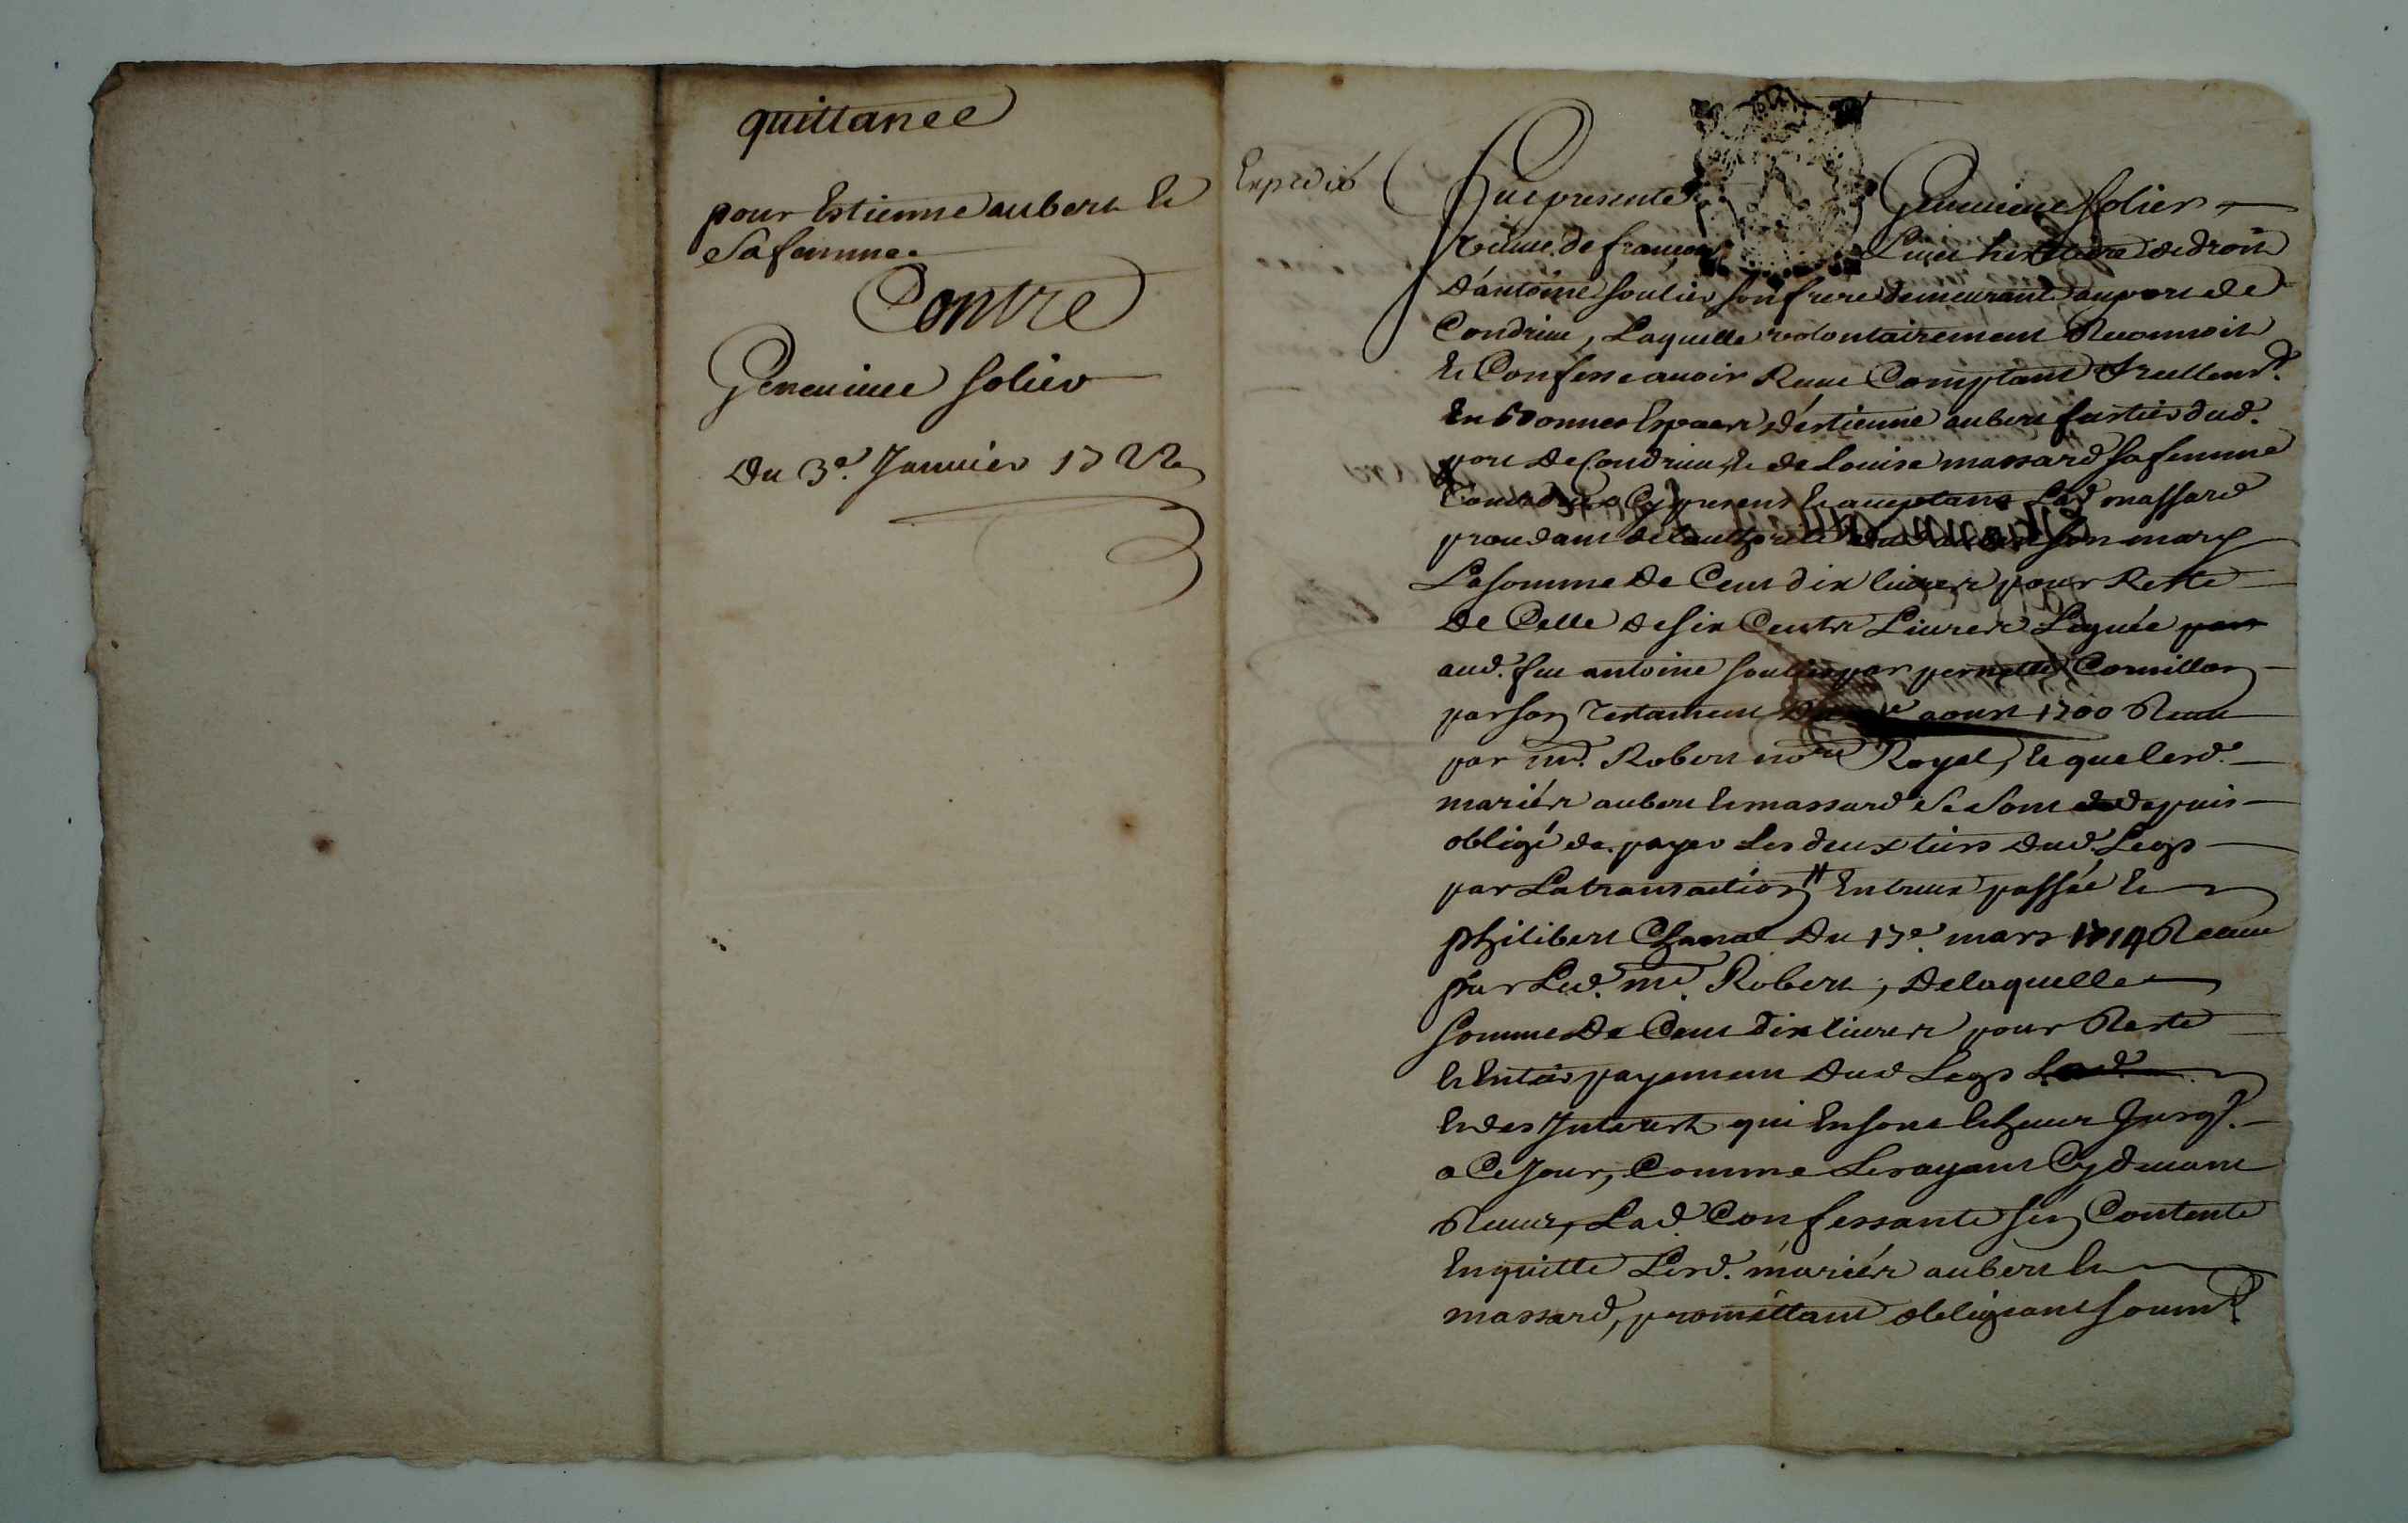 quittance
pour Estienne aubert et
Sa femme.
Contre
Geneuieue Solier
Du 3e. Januier 1722
Expedié
Fut presente Geneuieue Solier
veuue de françois Liuet heritiere de droit
d'antoine soulier son frere demeurante au port de
Condrieu, Laquelle volontairement Reconnoit
et Confesse auoir Receu Comptant reellemt.
En bonnes Especes d'estienne aubert fustier dud.
port de Condrieu, et de Louise massard sa femme
Cy presents et acceptans Lad massard
procedant de l'authorité son mary
La somme de Cent dix liures pour Reste
De Celle de six Cents Liures Leguée
aud. feu antoine soulier par pernette Cornillon
par son Testament aoust 1700 Receu
par me. Robert nore Royal, et que lesd.
mariés aubert et massard Se Sont depuis
obligé de payer Les deux tiers dud. Legs
par La transaction Entreux passée et
philibert Chanal Du 17e. mars 1714 Receue
par Led. me. Robert, De laquelle
somme De Cent Dix liures pour Reste
et Entier payement Dud Legs
et des Interests qui En sont Escheus Jusqs.
a Ce Jour, Comme Les ayant Cy deuant
Receus, Lad. Confessante sen Contente
En quitte Lesd. mariés aubert et
massard, promettant obligeant soumt.